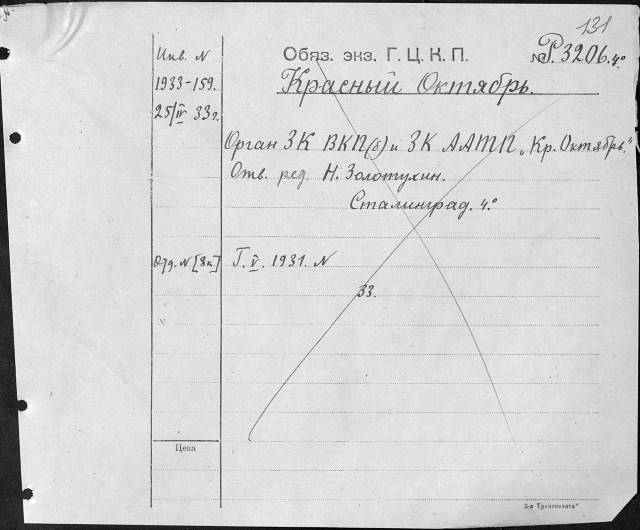 131
Инв. N
Обяз. экз. Г. Ц. К. П.
№Р.3206.4°
1933-159.
Красный Октябрь.
25/IV 33г.
Орган ЗК ВКП(б) и ЗК ААТП „Кр. Октябрь."
Отв. ред. Н. Золотухин.
Сталинград. 4.°
Отд. N [8к] Г. V. 1931. N
33.
Цена
3-я „Транспечать"